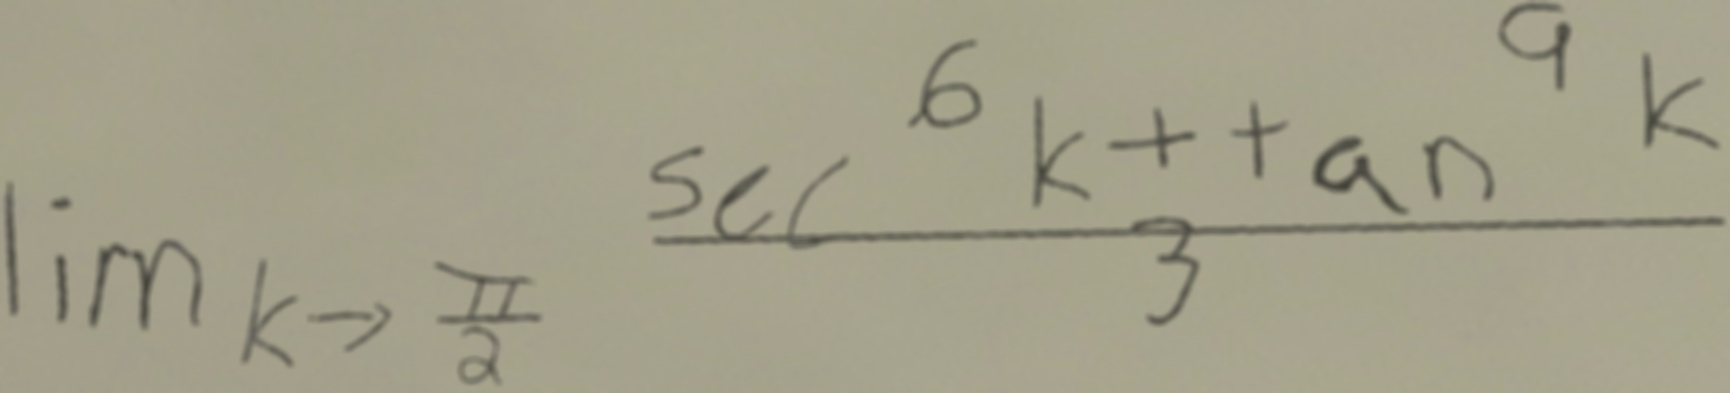 lim k→π/2 (sec^6 k + tan^9 k)/3